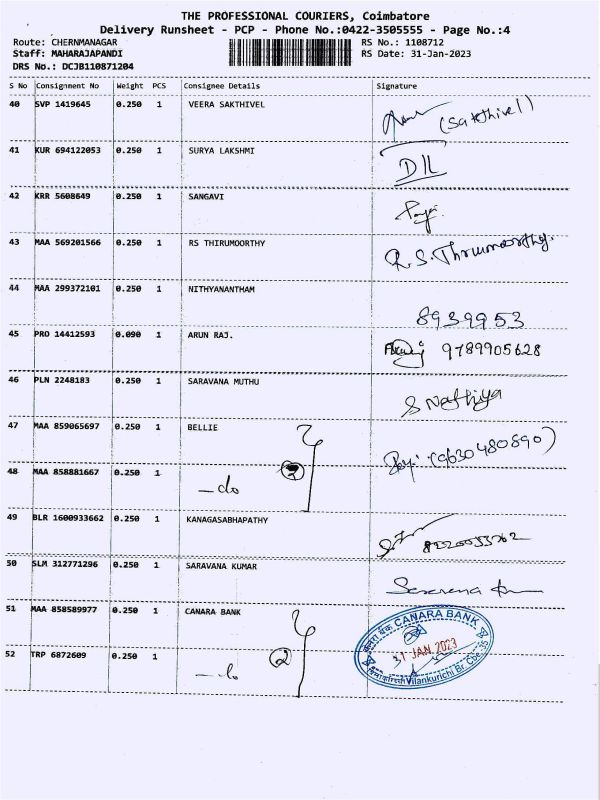 THE PROFESSIONAL COURIERS, Coimbatore
Delivery Runsheet - PCP - Phone No.:0422-3505555 - Page No.:4
Route: CHERNMANAGAR RS No.: 1108712
Staff: MAHARAJAPANDI RS Date: 31-Jan-2023
DRS No.: DCJB110871204
S No Consignment No Weight PCS Consignee Details Signature
40 SVP 1419645 0.250 1 VEERA SAKTHIVEL (Sakthivel)
41 KUR 694122053 0.250 1 SURYA LAKSHMI
42 KRR 5608649 0.250 1 SANGAVI
43 MAA 569201566 0.250 1 RS THIRUMOORTHY R.S.Thirumoorthy.
44 MAA 299372101 0.250 1 NITHYANANTHAM 8939953
45 PRO 14412593 0.090 1 ARUN RAJ. 9789905628
46 PLN 2248183 0.250 1 SARAVANA MUTHU S Nathiya
47 MAA 859065697 0.250 1 BELLIE (9630480890)
48 MAA 858881667 0.250 1 - do
49 BLR 1600933662 0.250 1 KANAGASABHAPATHY
50 SLM 312771296 0.250 1 SARAVANA KUMAR
51 MAA 858589977 0.250 1 CANARA BANK
52 TRP 6872609 0.250 1 - do 2
केनरा बैंक CANARA BANK
31 JAN 2023
Vilankurichi Br. Cbe.35